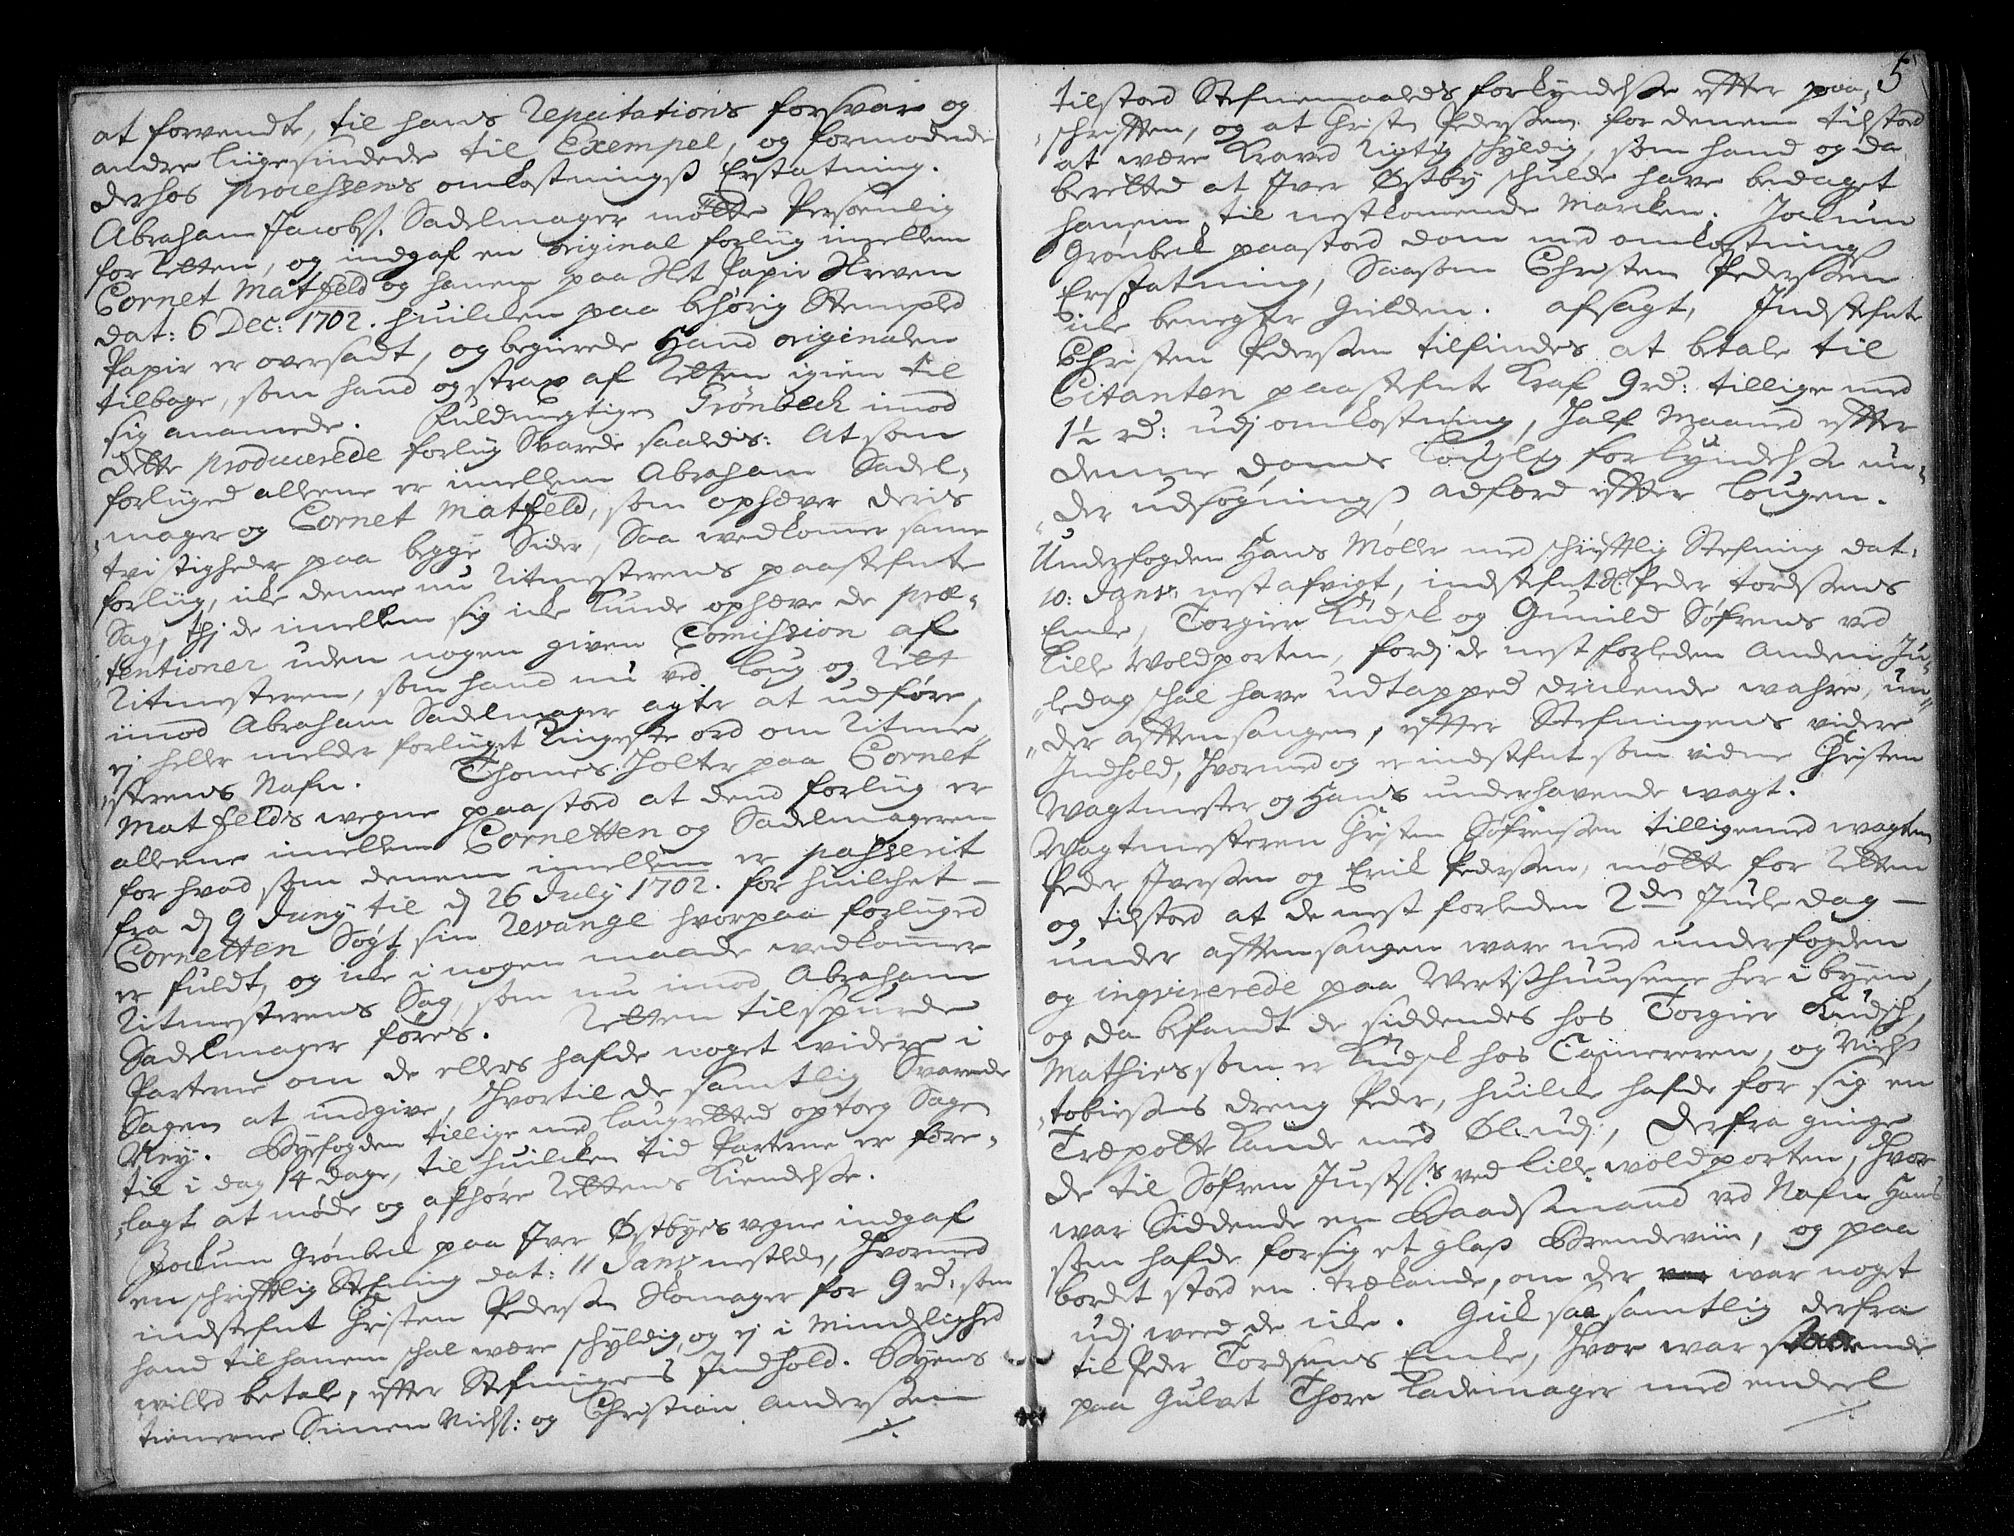 at forvendte, til hans Reputations forsvar og
andre liigesindede til Exempel, og formodede
derhos Processens omkostnings Erstatning.
Abraham Jacobs. Sadelmager mølte Persoenlig
for Retten, og indgaf en original forliig imellem
Cornet Matfeld og hanem paa Slet Papir Skreven
dat: 6 Dec: 1702. huilcken paa behørig Stempled
Papir er oversadt, og begierede Hand originalen
tilbage, som hand og strax af Retten igien til
sig anamede. Fuldmegtigen Grønbeck imod
dette producerede forliig Svarede saaledis: At som
forliiged alleene er imellem Abraham Sadel-
mager og Cornet Matfeld, som ophæver deris
tvistigheder paa begge Sider, Saa wedkommer samme
forliig, icke denne nu Ritmesterens paastefnte
Sag, thj de imellem sig icke kunde ophæve de præ-
tentioner uden nogen given Comission af
Ritmesteren, som hand nu ved Loug og Rett
imod Abraham Sadelmager agter at udføre,
ej heller melder forliiget Ringeste ord om Ritme-
sterens Nafn. Thomes Holter paa Cornet
Matfelds wegne paastod at dend forliig er
alleene imellem Cornetten og Sadelmageren
for hvad som denem imellem er passerit
fra d 9 Junij til d 26 July 1702. for huilchet
Cornetten Søgt sin Revange hvorpaa forliiged
er fuldt, og icke i nogen maade wedkommer
Ritmesterens Sag, som nu imod Abraham
Sadelmager føres. Retten tilspurde
Parterne om de ellers hafde noget widere i
Sagen at indgive, Hvortil de samtlig Svarede
Ney. Byefogden tillige med Laugretted optoeg Sagen
til i dag 14 dage, til huilcken tid Parterne er fore-
lagt at møde og afhøre Rettens Kiendelsse.
Jockum Grønbeck paa Iver Østbyes vegne indgaf
en schrifftlig Stefning dat: 11 Janv: nestleden, Hvormed
indstefnt Christen Pederss Skomager for 9 rd: som
hand til hanem schal were schyldig, og ej i Mindelighed
willed betale, efter Stefningens Indhold. Byens
tienerne Simen Niels: og Christian Anderssen
5
tilstoed Stefnemaalds forkyndelsse efter paa-
schrifften, og at Christen Pederssen for denem tilstoed
at være kraved rigtig schyldig, som hand og da
beretted at Iver Østby schulde have bedaget
hanem til nestkomende Marcken. Jockum
Grønbeck paastoed dom med omkostnings
Erstatning, Saasom Christen Pederssen
icke benegter Gielden. Afsagt, Indstefnte
Christen Pederssen tilfindes at betale til
Citanten paastefnte Kraf 9 rd: tillige med
1½ rd: udj omkostning, Half Maaned efter
denne doms louglig forkyndelsse un-
der udsøgnings adfærd efter Lougen.
Underfogden Hans Møller med schrifftlig Stefning dat:
10: Janv: nest afvigt, indstefnt Peder Tordsens
Encke, Torgier Kudsk og Gunild Søfrens ved
Lille Woldporten, fordj de nest forleden Anden Ju-
ledag schal have udtapped drickende wahre, un-
der afftensangen, efter Stefningens videre
Indhold, Hvormed og er indstefnt som vidne Christen
Wagtmester og Hans underhavende wagt.
Wagtmesteren Christen Søfrenssen tilligemed wagten
Peder Iverssen og Erik Pederssen, mølte for Retten
og tilstoed at de nest forleden 2den Juele dag
under afftensangen ware med underfogden
og inqvirerede paa Wertshuusene her i byen,
og da befandt de siddendes hos Torgier Kudsch,
Mathies som er Kudsk hos Cämereren, og Niels
Tobiessens dreng Peder, huilcke hafde for sig en
Træpotte Kande med Øl udj, Derfra ginge
de til Søfren Justss ved Lille woldporten, Hvor
war Siddende en Baadsmand ved Nafn Hans
som hafde for sig et glas Brendeviin, og paa
bordet stoed en trækande, om der war noget
udj weed de icke. Gick saa samtlig derfra
til Peder Tordsens Encke, Hvor war staaende
paa Gulvet Thore Lademager med endeel